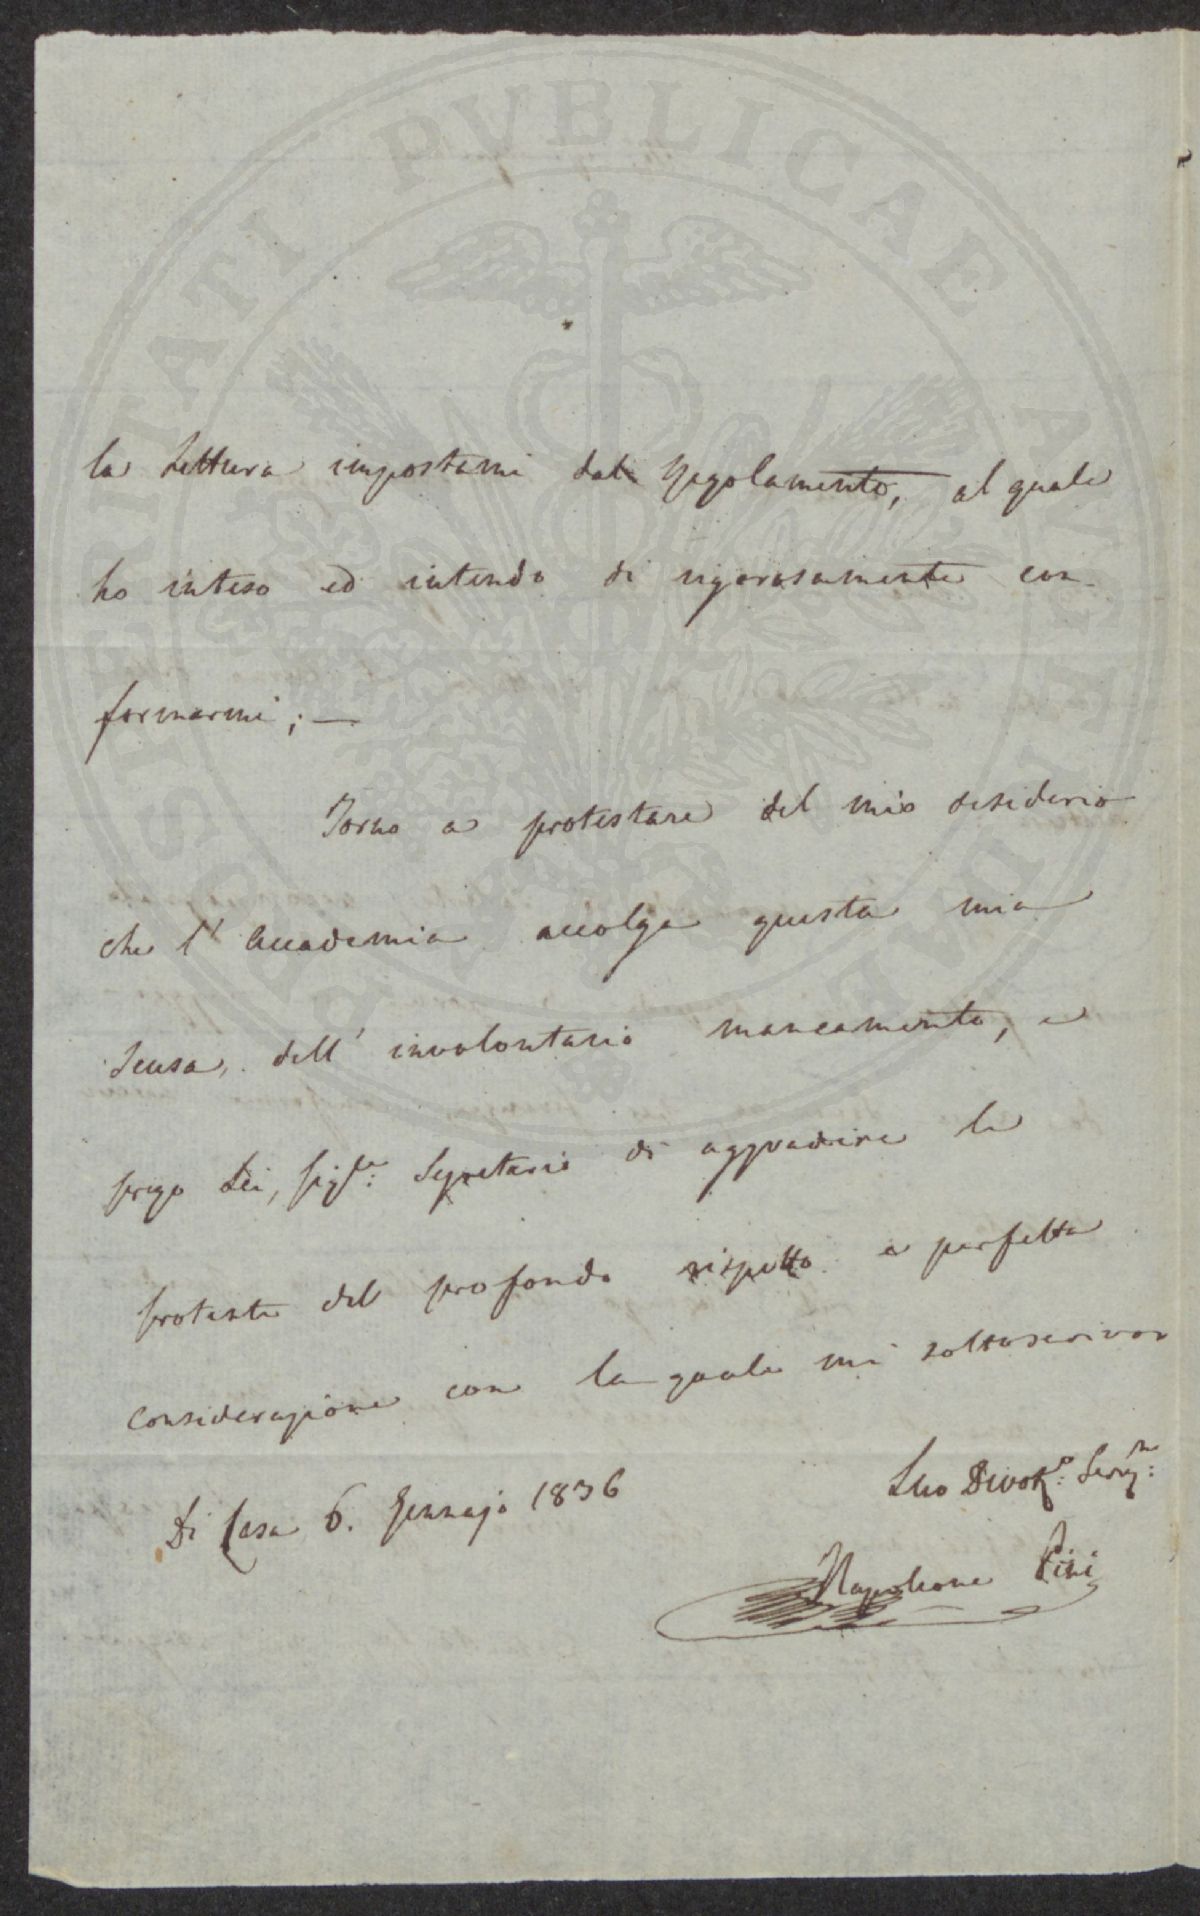 PROSPERITATI PVBLICAE AVGENDAE
la Lettura impostami dal Regolamento, al quale
ho inteso ed intendo di rigorosamente con-
formarmi; —
Torno a protestare del mio desiderio
che l' Accademia accolga questa mia
scusa, dell' involontario mancamento, e
prego Lei, Sig.re Segretario di aggradire le
proteste del profondo rispetto e perfetta
considerazione con la quale mi sottoscrivo
Suo Devot.o: Serv.re:
Di Casa 6. Gennajo 1836
Napoleone Pini